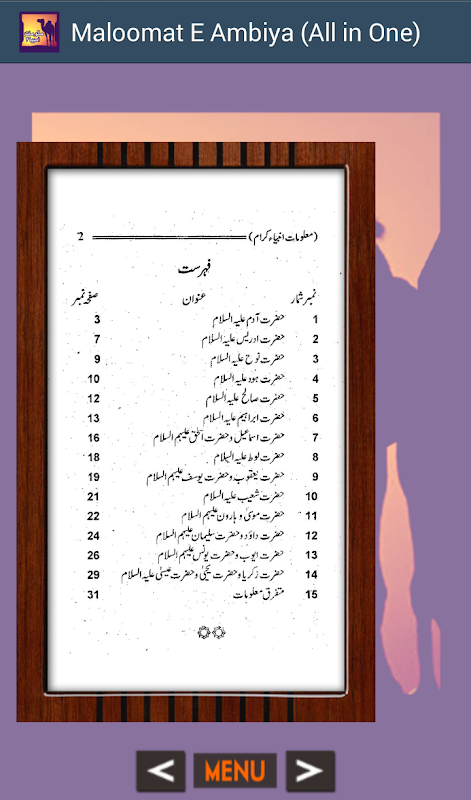 Maloomat E Ambiya (All in One)
(معلومات انبیاء کرام) 2
فہرست
نمبر شمار عنوان صفحہ نمبر
1 حضرت آدم علیہ السلام 3
2 حضرت ادریس علیہ السلام 7
3 حضرت نوح علیہ السلام 9
4 حضرت ہود علیہ السلام 10
5 حضرت صالح علیہ السلام 12
6 حضرت ابراہیم علیہ السلام 13
7 حضرت اسماعیل و حضرت اسحٰق علیہم السلام 16
8 حضرت لوط علیہ السلام 18
9 حضرت یعقوب و حضرت یوسف علیہم السلام 19
10 حضرت شعیب علیہ السلام 21
11 حضرت موسیٰ و ہارون علیہم السلام 22
12 حضرت داؤد و حضرت سلیمان علیہم السلام 24
13 حضرت ایوب و حضرت یونس علیہم السلام 26
14 حضرت زکریا و حضرت یحییٰ و حضرت عیسیٰ علیہ السلام 29
15 متفرق معلومات 31
< MENU >